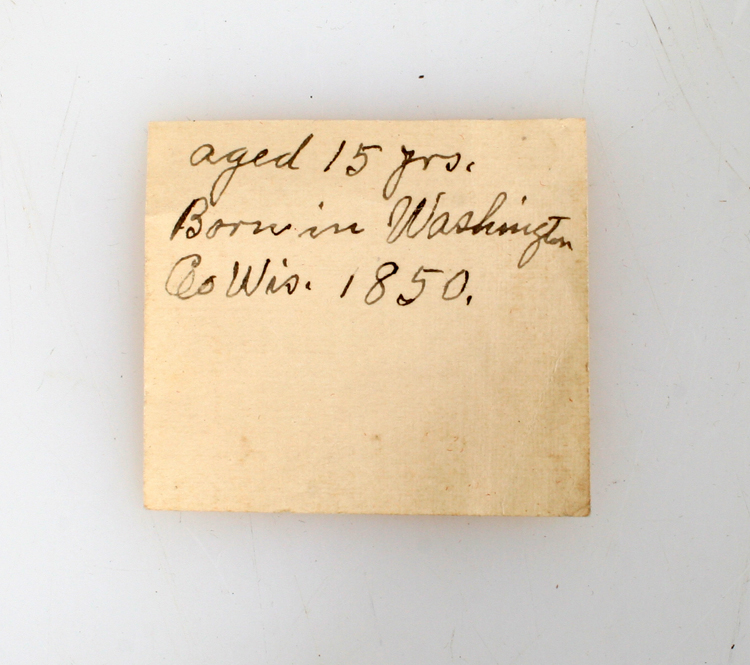 aged 15 yrs.
Born in Washington
Co Wis. 1850.